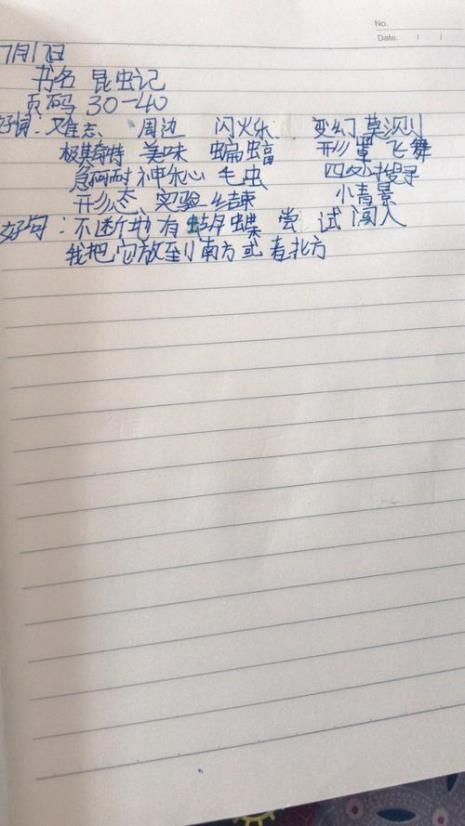 No.
Date. / /
7月17日
书名 昆虫记
页码 30-40
好词: 难忘 周边 闪烁 变幻莫测
极其奇特 美味 蝙蝠 形单 飞舞
急 神 心 毛虫 四处搜寻
形态 实验 结束 小青景
好句:不断地有蝴蝶尝试闯入
我把它放到南方或者北方